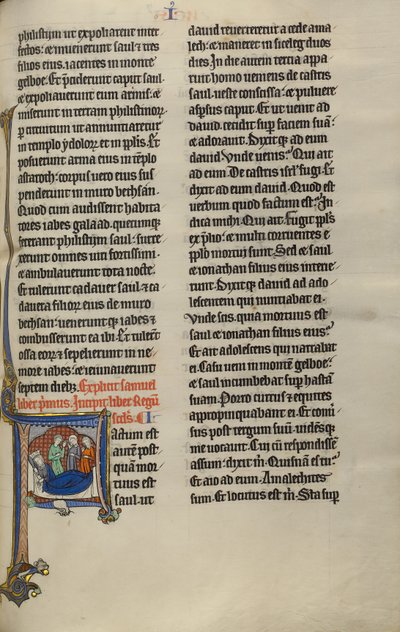 I
philistijm ut expoliarent inter
fectos: et invenerunt saul et tres
filios eius iacentes in monte
gelboe. Et preciderunt caput saul
et expoliaverunt eum armis: et
miserunt in terram philistinor
per circuitum ut annuntiaretur
in templo ydolor et in pplis. Et
posuerunt arma eius in templo
astaroth: corpus vero eius sus
penderunt in muro bethsan.
Quod cum audissent habita
tores iabes galaad. quecumque
fecerant philistijm saul: surre
xerunt omnes viri fortissimi.
et ambulaverunt tota nocte.
Et tulerunt cadaver saul. et ca
davera filior eius de muro
bethsan: veneruntque iabes et
combusserunt ea ibi. Et tulerunt
ossa eor et sepelierunt in ne
more iabes: et ieiunaverunt
septem diebz. Explicit samuel
liber primus. Incipit liber Regum
scds. I
Factum est
autem post
quam mor
tuus est
saul. ut
david reverteretur a cede ama
lech: et maneret in siceleg duos
dies. In die autem tertia appa
ruit homo veniens de castris
saul. veste conscissa. et pulvere
aspsus caput. Et ut venit ad
david. cecidit sup faciem suam:
et adoravit. Dixitque ad eum
david. Unde venis? Qui ait
ad eum. De castris israel fugi. Et
dixit ad eum david. Quod est
verbum quod factum est? In
dica michi. Qui ait. Fugit ppls
ex prelio: et multi corruentes e
pplo mortui sunt. Sed et saul
et ionathan filius eius interie
runt. Dixitque david ad ado
lescentem qui nuntiabat ei.
Unde scis. quia mortuus est
saul et ionathan filius eius?
Et ait adolescens qui narrabat
ei. Casu veni in montem gelboe:
et saul incumbebat sup hastam
suam. Porro currus et equites
appropinquabant ei. Et conver
sus post tergum suum. vidensque
me vocavit. Cui cum respondissem
assum: dixit m. Quisnam es tu?
Et aio ad eum. Amalechites
sum. Et locutus est m. Sta sup